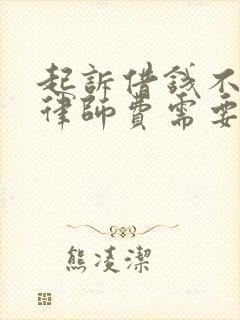 起訴借錢不
律師費需要
熊凌潔